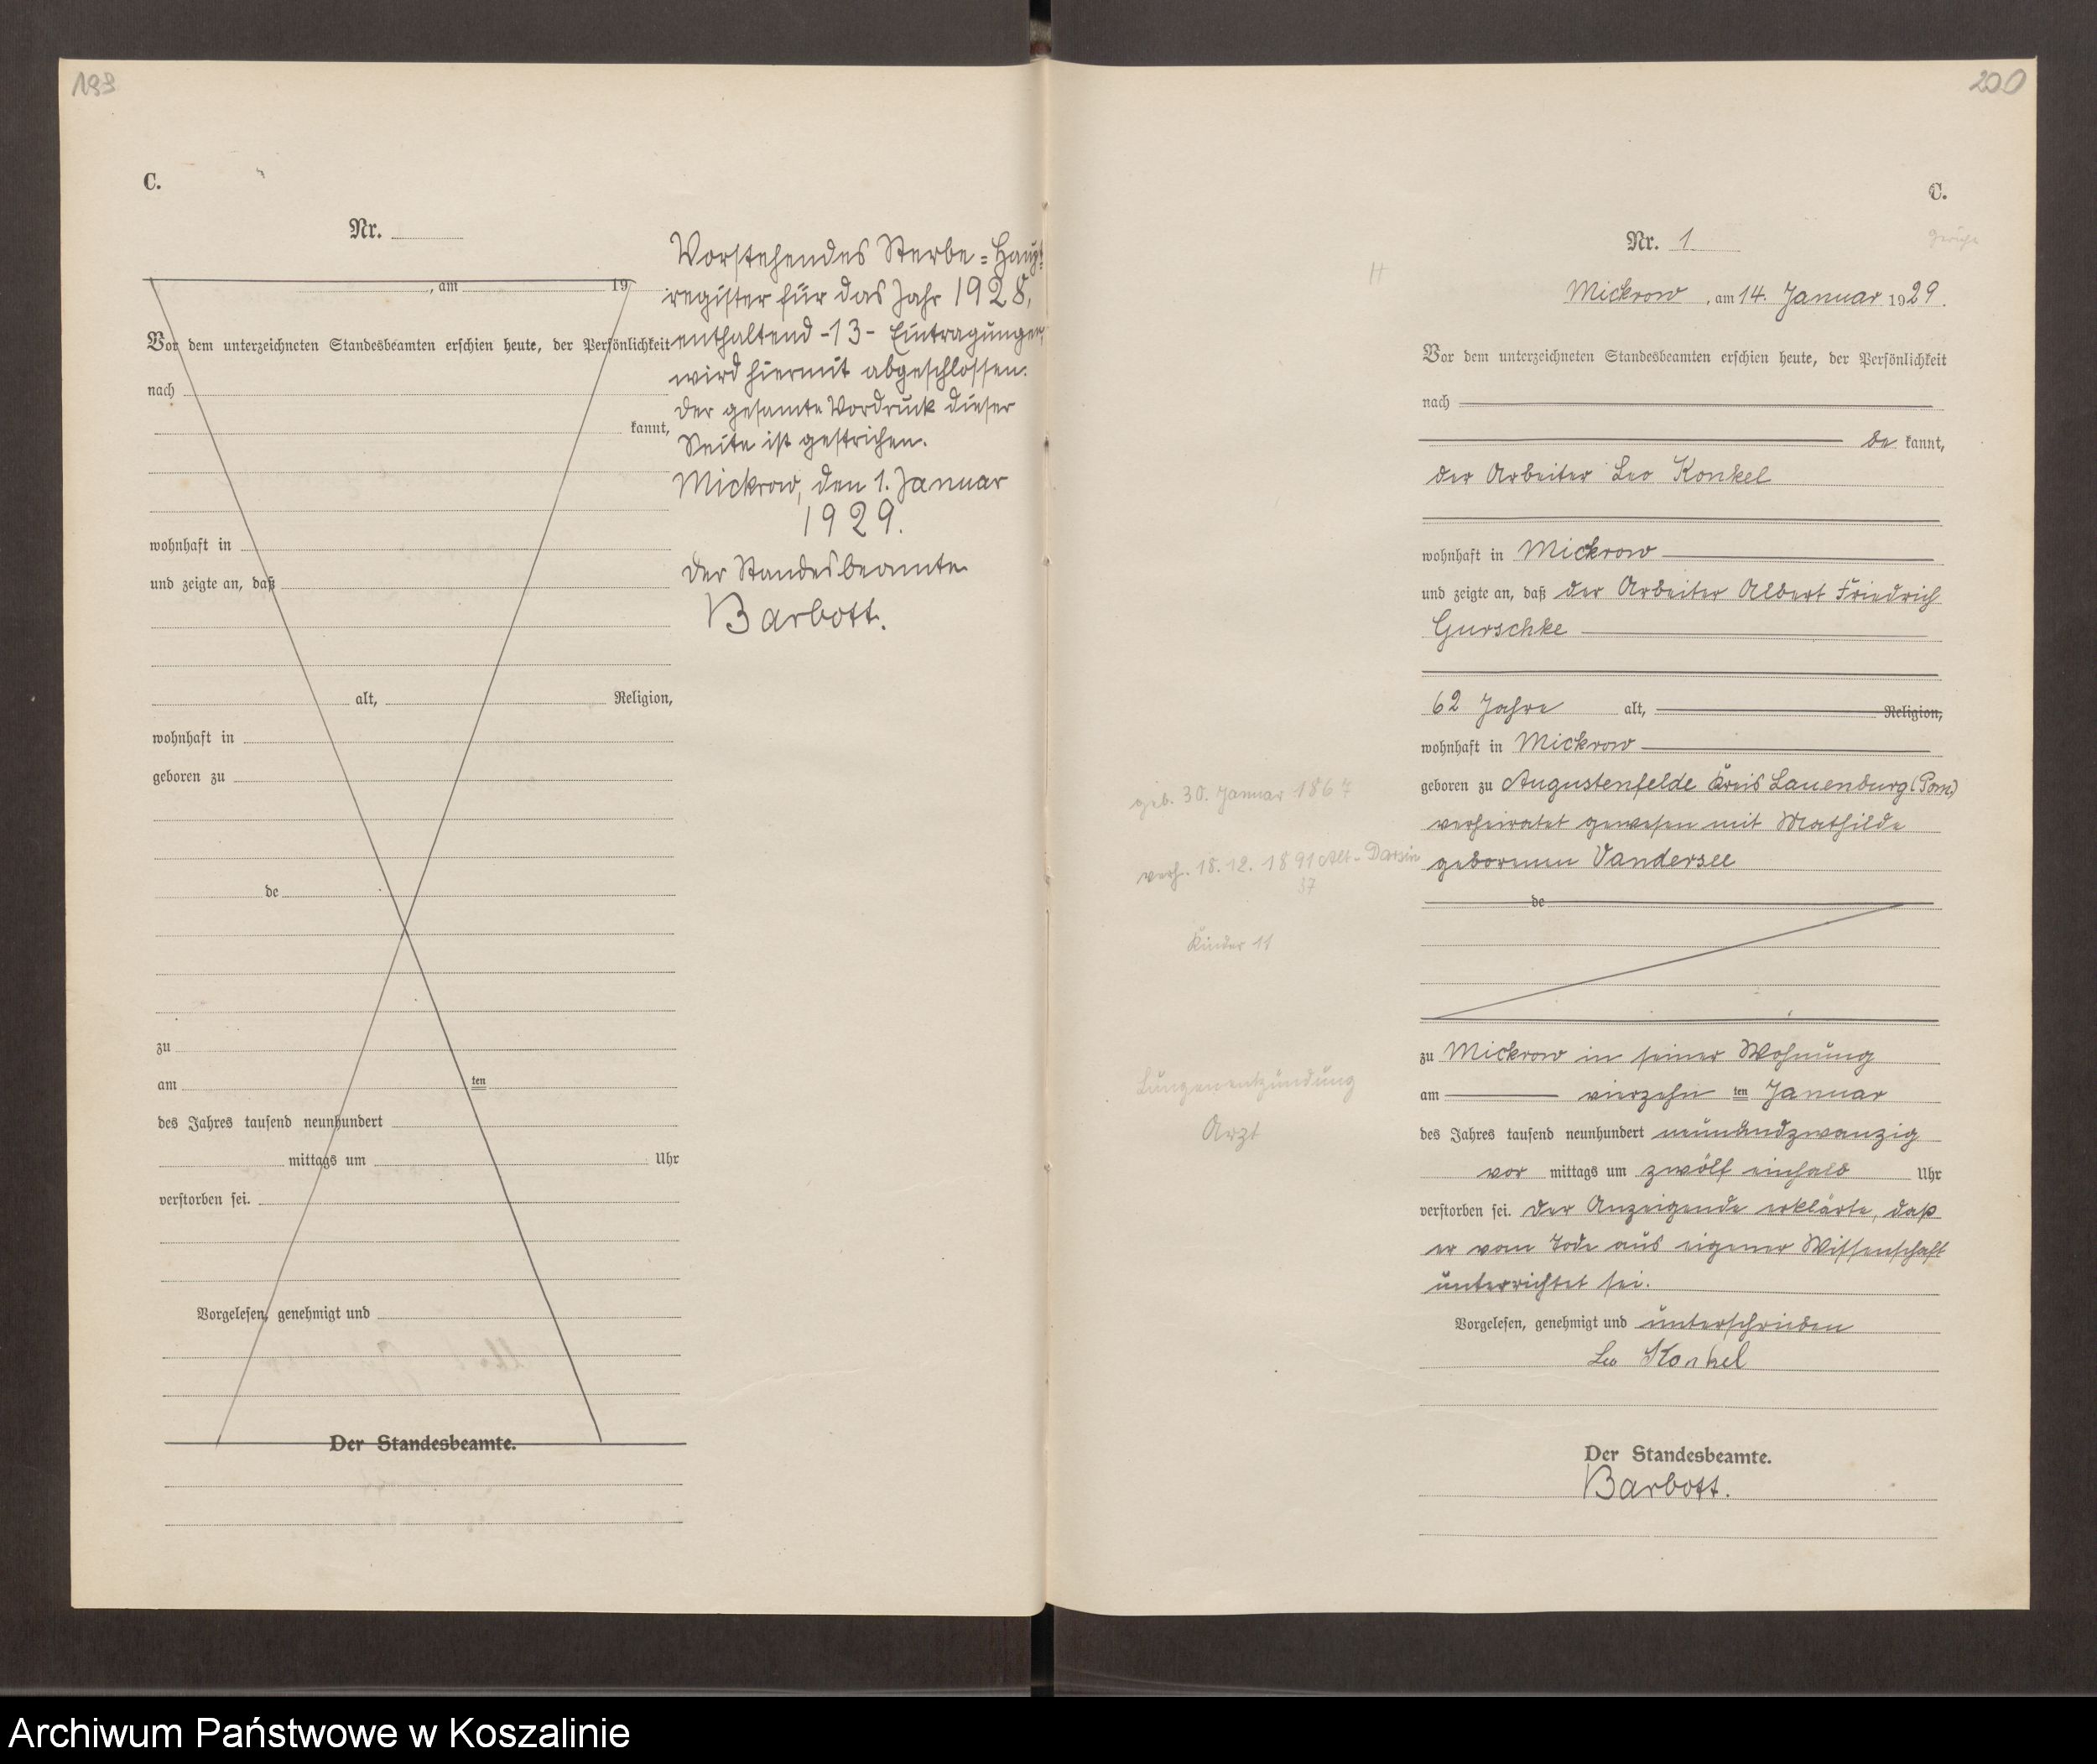 199
C.
Nr.
, am 19
Vor dem unterzeichneten Standesbeamten erschien heute, der Persönlichkeit
nach
kannt,
wohnhaft in
und zeigte an, daß
alt, Religion,
wohnhaft in
geboren zu
de
zu
am ten
des Jahres tausend neunhundert
mittags um Uhr
verstorben sei.
Vorgelesen, genehmigt und
Der Standesbeamte.
Vorstehendes Sterbe=Haupt
register für das Jahr 1928,
enthaltend -13- Eintragungen,
wird hiermit abgeschlossen.
Der gesamte Vordruck dieser
Seite ist gestrichen.
Mickrow, den 1. Januar
1929.
Der Standesbeamte
Barbott.
200
C.
Nr. 1
Mickrow, am 14. Januar 1929.
Vor dem unterzeichneten Standesbeamten erschien heute, der Persönlichkeit
nach
be kannt,
der Arbeiter Leo Konkel
wohnhaft in Mickrow
und zeigte an, daß der Arbeiter Albert Friedrich
Gurschke
62 Jahre alt, Religion,
wohnhaft in Mickrow
geboren zu Augustenfelde Kreis Lauenburg (Pom)
verheiratet gewesen mit Mathilde
geborenen Vandersee
de
zu Mickrow in seiner Wohnung
am vierzehn ten Januar
des Jahres tausend neunhundert neunundzwanzig
vor mittags um zwölf einhalb Uhr
verstorben sei. Der Anzeigende erklärte, daß
er vom Tode aus eigener Wissenschaft
unterrichtet sei.
Vorgelesen, genehmigt und unterschrieben
Leo Konkel
Der Standesbeamte.
Barbott.
geb. 30. Januar 1867
verh. 18.12.1891 Alt-Darsin
37
Kinder 11
Lungenentzündung
Arzt
Archiwum Państwowe w Koszalinie